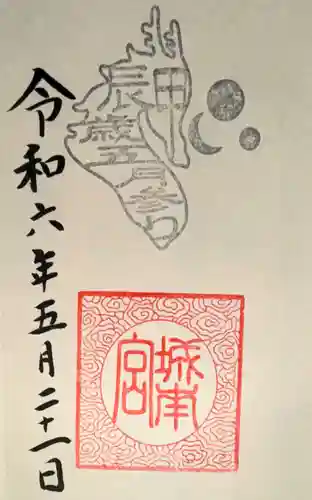 甲
辰歳五月参り
城南
宮
令和六年五月二十一日